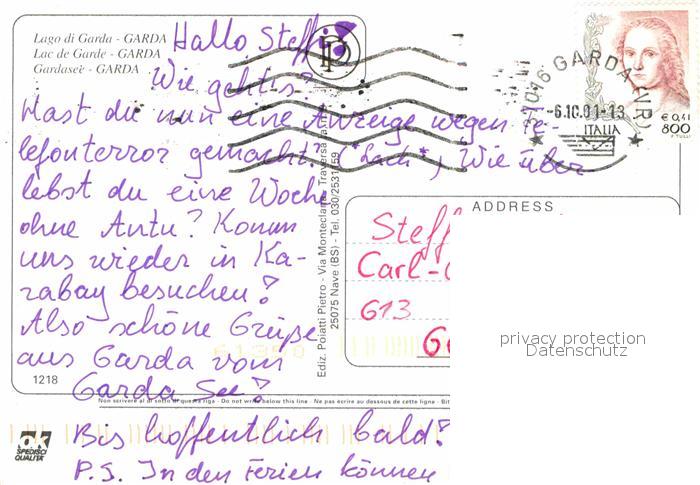 Lago di Garda - GARDA
Lac de Garde - GARDA
Gardasee - GARDA
Hallo Steffi
Wie geht's?
Hast du nun eine Anzeige wegen Te-
lefonterror gemacht? (*Lach*), Wie über
lebst du eine Woche
ohne Antu? Komm
uns wieder in Ka-
zabay besuchen?
Also schöne Grüße
aus Garda vom
Garda See?
Bis hoffentlich bald?
P.S. In den Ferien können
1218
OK
SPEDISCI
QUALITÀ
Non scrivere al di sotto di questa riga - Do not write below this line - Ne pas écrire au dessous de cette ligne -
Ediz. Poiatti Pietro - Via Monteclana, Traversa
25075 Nave (BS) - Tel. 030/2531159
016 GARDA (VR)
-6.10.01-13
ITALIA
€ 0,41
800
ADDRESS
Steff
Carl-
613
privacy protection
Datenschutz